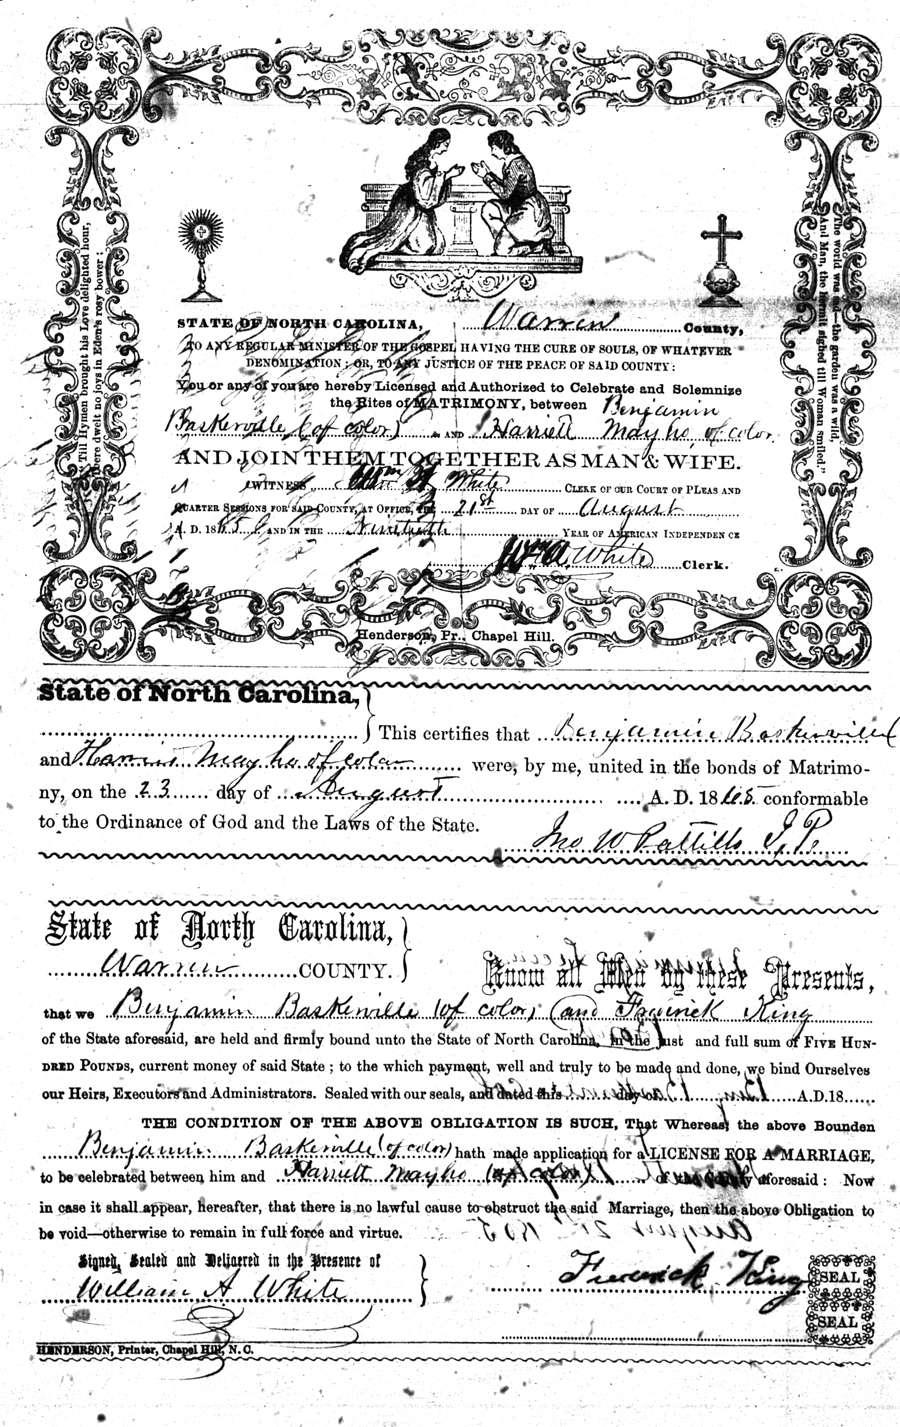 "Till Hymen brought his Love delighted hour,
There dwelt no joys in Eden's rosy bower:
The world was sad—the garden was a wild,
And Man, the Hermit sighed till Woman smiled."
STATE OF NORTH CAROLINA, Warren County,
TO ANY REGULAR MINISTER OF THE GOSPEL HAVING THE CURE OF SOULS, OF WHATEVER
DENOMINATION; OR, TO ANY JUSTICE OF THE PEACE OF SAID COUNTY:
You or any of you are hereby Licensed and Authorized to Celebrate and Solemnize
the Rites of MATRIMONY, between Benjamin
Baskerville (of color) AND Harriett Mayho, of color
AND JOIN THEM TOGETHER AS MAN & WIFE.
WITNESS Wm A White CLERK OF OUR COURT OF PLEAS AND
QUARTER SESSIONS FOR SAID COUNTY, AT OFFICE, THE 21st DAY OF August
A. D. 1865 AND IN THE Ninetieth YEAR OF AMERICAN INDEPENDENCE
Wm A. White Clerk.
Henderson, Pr., Chapel Hill.
State of North Carolina,
This certifies that Benjamin Baskerville
and Harriett Mayho of color were, by me, united in the bonds of Matrimo-
ny, on the 23 day of August A. D. 1865 conformable
to the Ordinance of God and the Laws of the State.
Jno W Pattillo J. P.
State of North Carolina,
Warren COUNTY.
Know all Men by these Presents,
that we Benjamin Baskerville (of color) and Frederick King
of the State aforesaid, are held and firmly bound unto the State of North Carolina, in the just and full sum of FIVE HUN-
DRED POUNDS, current money of said State; to the which payment, well and truly to be made and done, we bind Ourselves
our Heirs, Executors and Administrators. Sealed with our seals, and dated this day of A.D. 18
THE CONDITION OF THE ABOVE OBLIGATION IS SUCH, That Whereas, the above Bounden
Benjamin Baskerville (of color) hath made application for a LICENSE FOR A MARRIAGE,
to be celebrated between him and Harriett Mayho (of color) of the County aforesaid: Now
in case it shall appear, hereafter, that there is no lawful cause to obstruct the said Marriage, then the above Obligation to
be void—otherwise to remain in full force and virtue.
Signed, Sealed and Delivered in the Presence of
William A White
Frederick King SEAL
SEAL
HENDERSON, Printer, Chapel Hill, N. C.